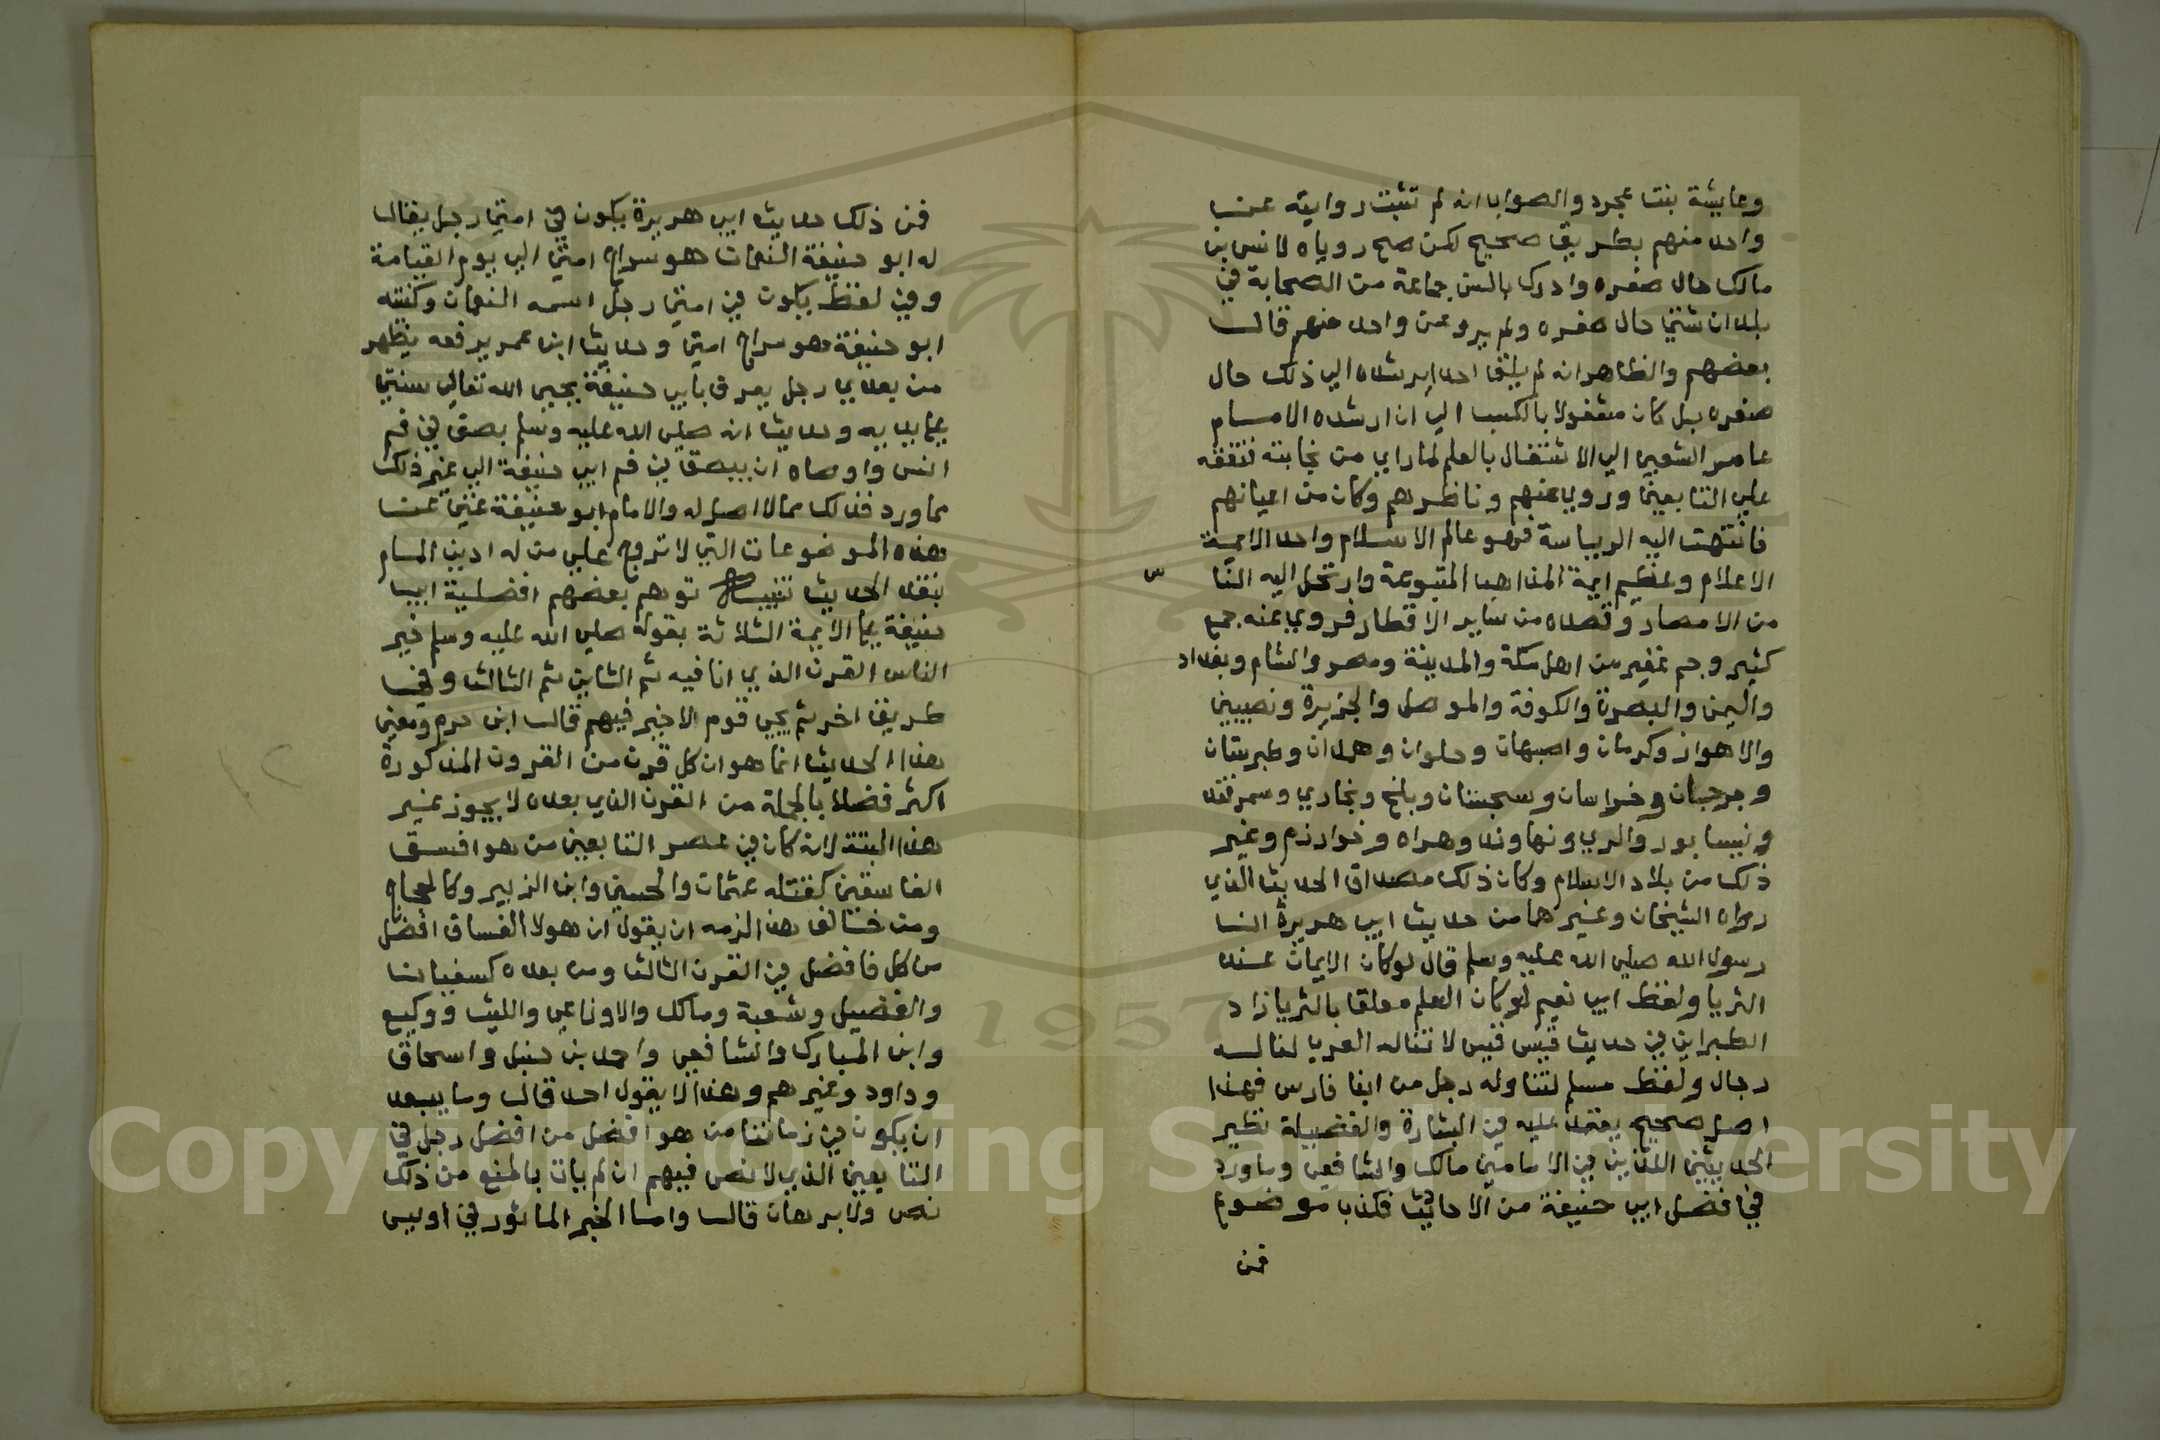 وعايشة بنت عجرد والصواب انه لم تثبت روايته عن
واحد منهم بطريق صحيح لكن صح روياه لانس بن
مالك حال صغره وادرك بالسن جماعة من الصحابة في
بلدان شتي حال صغره ولم يرو عن واحد منهم قال
بعضهم والظاهر انه لم يلق احدا يرشده الي ذلك حال
صغره بل كان مشغولا بالكسب الي ان ارشده الامام
عامر الشعبي الي الاشتغال بالعلم لما راي من نجابته فتفقه
علي التابعين وروي عنهم وناظرهم وكان من اعيانهم
فانتهت اليه الرياسة فهو عالم الاسلام واحد الايمة
الاعلام وعظيم ايمة المذاهب المتبوعة وارتحل اليه النا
س
من الامصار وقصده من ساير الاقطار فروي عنه جمع
كثير وجم غفير من اهل مكة والمدينة ومصر والشام وبغداد
واليمن والبصرة والكوفة والموصل والجزيرة ونصيبين
والاهواز وكرمان واصبهان وحلوان وهمدان وطبرستان
وجرجان وخراسان وسجستان وبلخ وبخاري وسمرقند
ونيسابور والري ونهاوند وهراه وخوارزم وغير
ذلك من بلاد الاسلام وكان ذلك مصداق الحديث الذي
رواه الشيخان وغيرهما من حديث ابي هريرة ان
رسول الله صلي الله عليه وسلم قال لو كان الايمان عند
الثريا ولفظ ابي نعيم لو كان العلم معلقا بالثريا زاد
الطبراني في حديث قيس قيس لا تناله العرب لناله
رجال ولفظ مسلم لتناوله رجل من ابنا فارس فهذا
اصل صحيح يعتمد عليه في البشارة والفضيلة نظير
الحديثين اللذين في الامامين مالك والشافعي وما ورد
في فضل ابي حنيفة من الاحاديث فكذب موضوع
فمن
فمن ذلك حديث ابي هريرة يكون في امتي رجل يقال
له ابو حنيفة النعمان هو سراج امتي الي يوم القيامة
وفي لفظ يكون في امتي رجل اسمه النعمان وكنيته
ابو حنيفة هو سراج امتي وحديث ابن عمر يرفعه يظهر
من بعدي رجل يعرف بابي حنيفة يحيي الله تعالي سنتي
علي يديه وحديث انه صلي الله عليه وسلم بصق في فم
انس واوصاه ان يبصق في فم ابي حنيفة الي غير ذلك
مما ورد فذلك مما لا اصل له والامام ابو حنيفة غني عن
هذه الموضوعات التي لا تروج علي من له ادني المام
بنقد الحديث تنبيه توهم بعضهم افضلية ابي
حنيفة علي الايمة الثلاثة بقوله صلي الله عليه وسلم خير
الناس القرن الذي انا فيه ثم الثاني ثم الثالث وفي
طريق اخر ثم يجي قوم لا خير فيهم قال ابن حزم ومعني
هذا الحديث انما هو ان كل قرن من القرون المذكورة
اكثر فضلا بالجملة من القرن الذي بعده لا يجوز غير
هذا البتة لانه كان في عصر التابعين من هو افسق
الفاسقين كقتله عثمان والحسين وابن الزبير وكالحجاج
ومن خالف هذا لزمه ان يقول ان هولا الفساق افضل
من كل فاضل في القرن الثالث ومن بعده كسفيان
والفضيل وشعبة ومالك والاوزاعي والليث ووكيع
وابن المبارك والشافعي واحمد بن حنبل واسحاق
وداود وغيرهم وهذا لا يقول احد قال وما يبعد
ان يكون في زماننا من هو افضل من افضل رجل في
التابعين الذي لا نص فيهم ان لم يات بالمنع من ذلك
نص ولا برهان قال واما الخبر الماثور في اويس
1957
Copyright © King Saud University